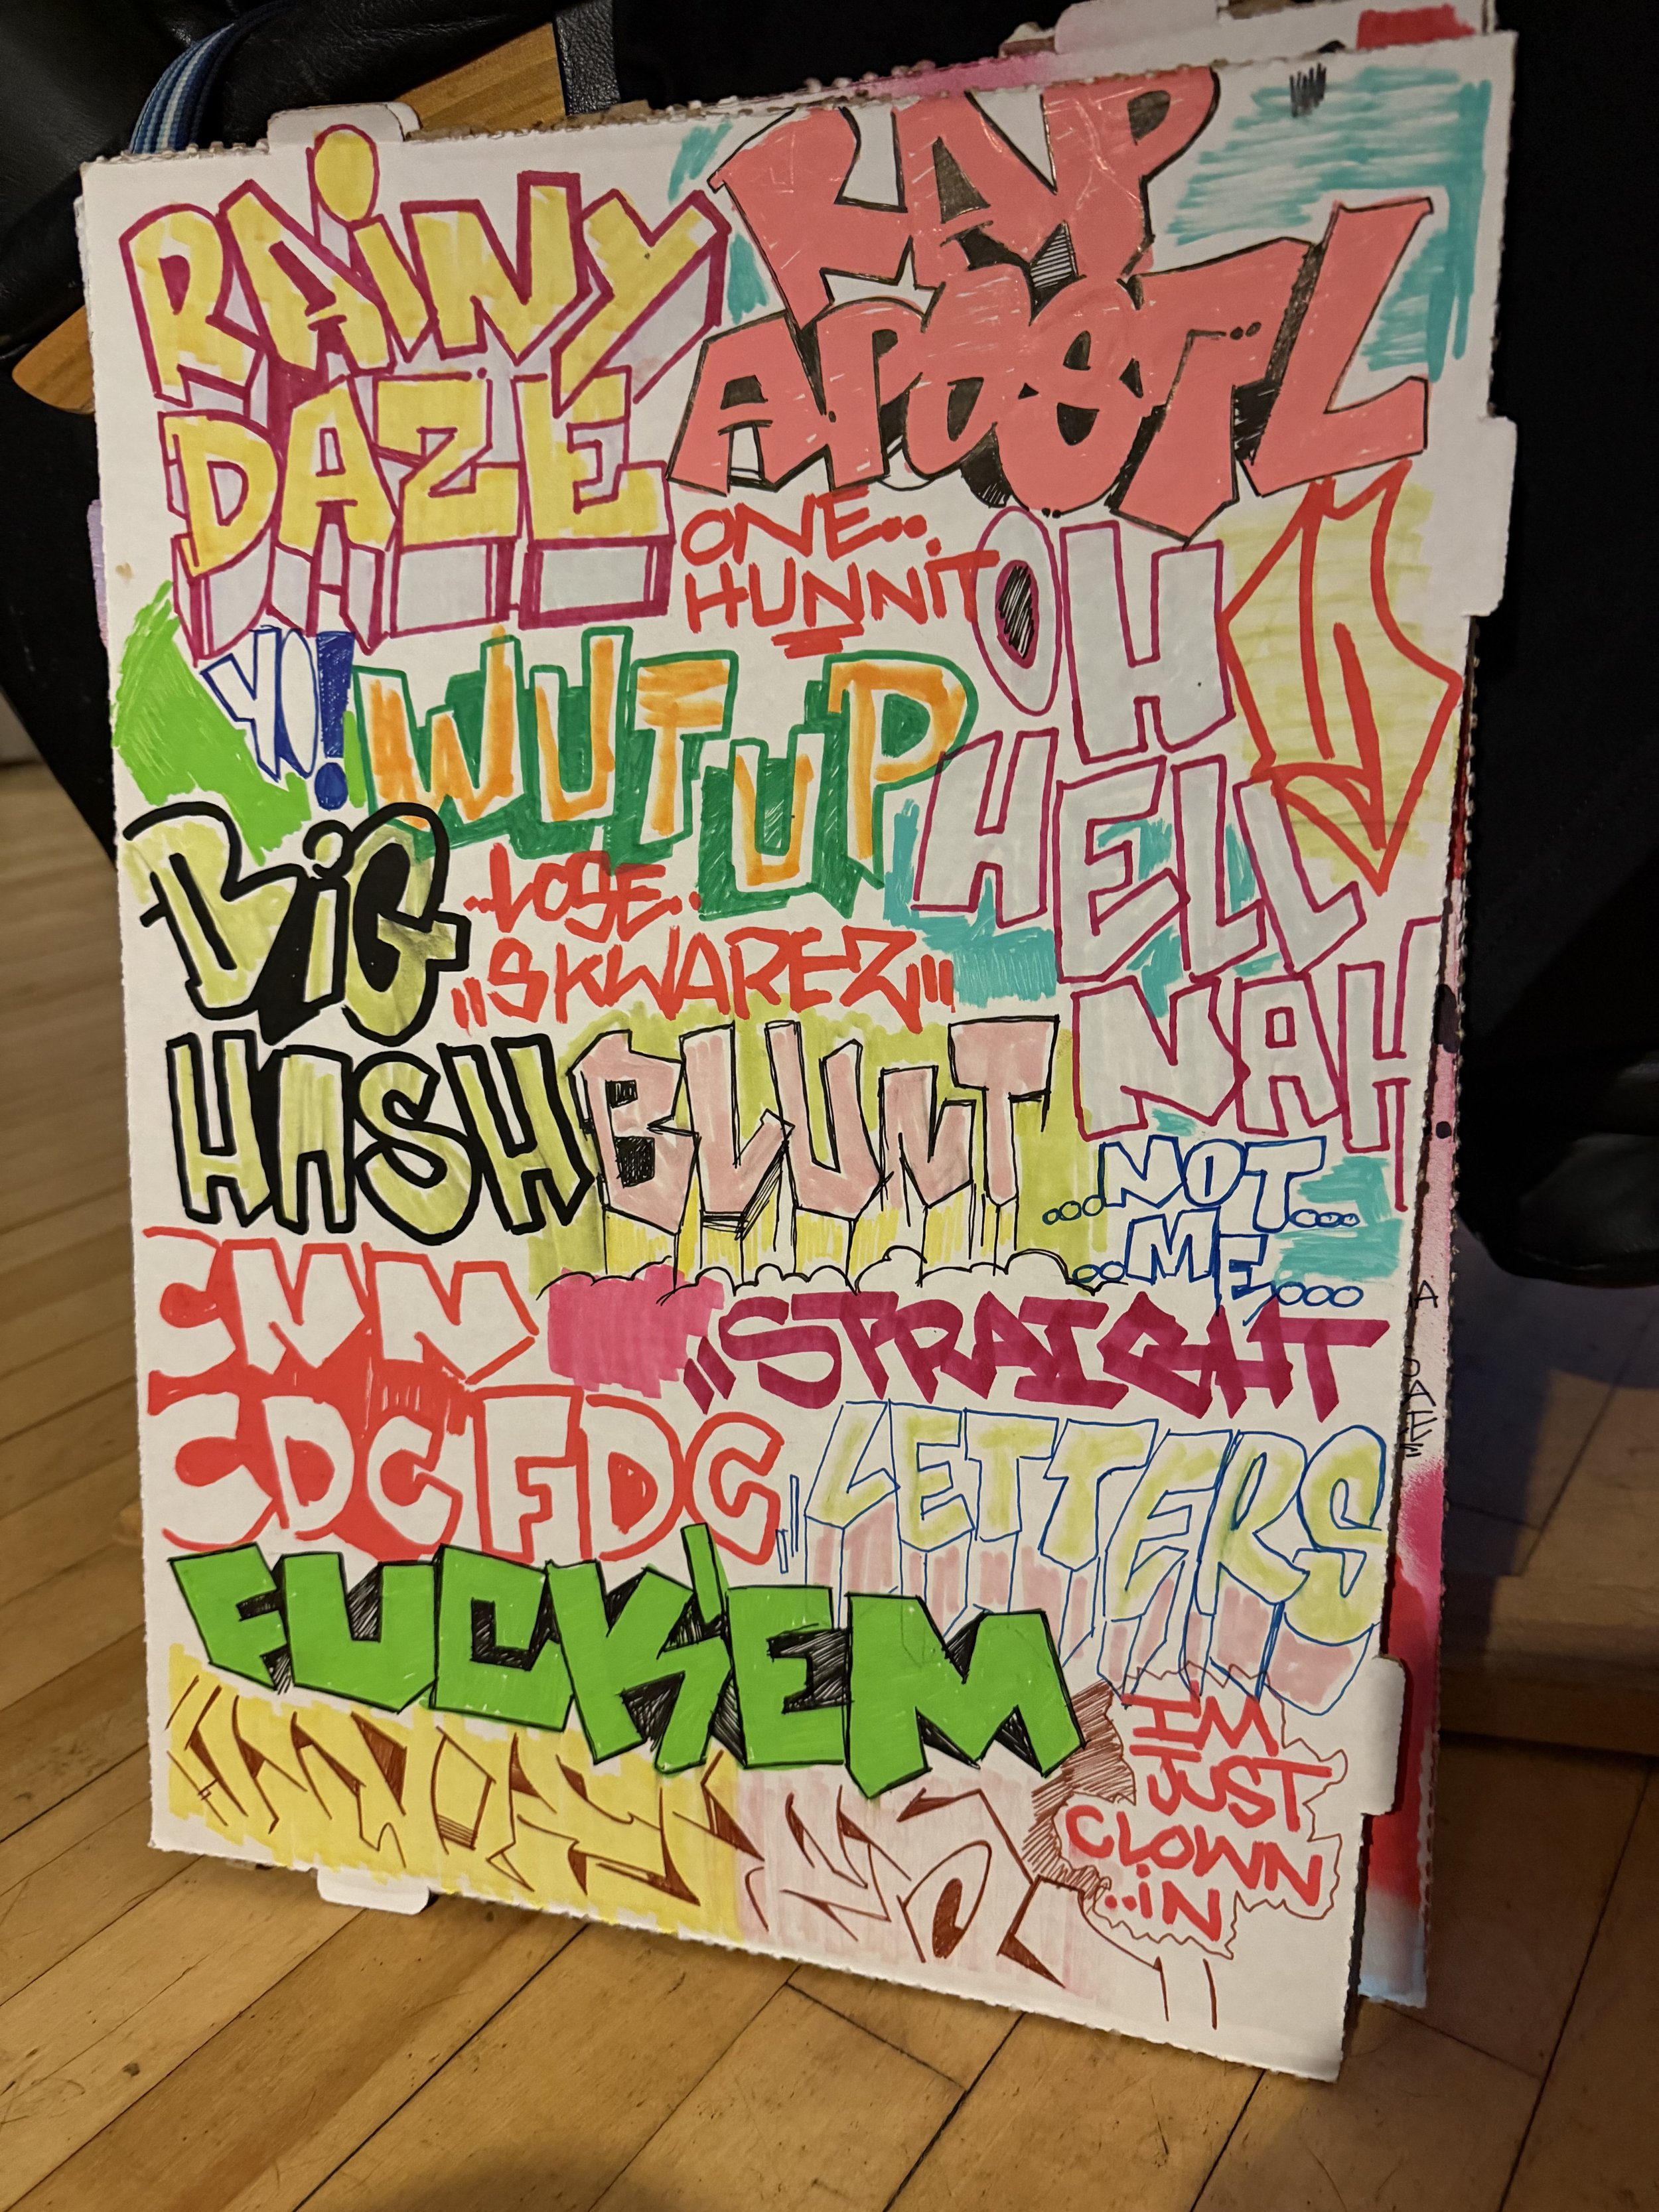 RAiNY
DAZE
RAP
APOSTL
ONE..
HUNNiT
YO!
WUT UP
OH
HELL
NAH
BiG
HASH
..LOSE..
„SKWAREZ„,
BLUNT
...NOT...
..ME,...
CNN
CDC FDC
„STRAIGHT
LETTERS
FUCK'EM
IM
JUST
CLOWN
..iN